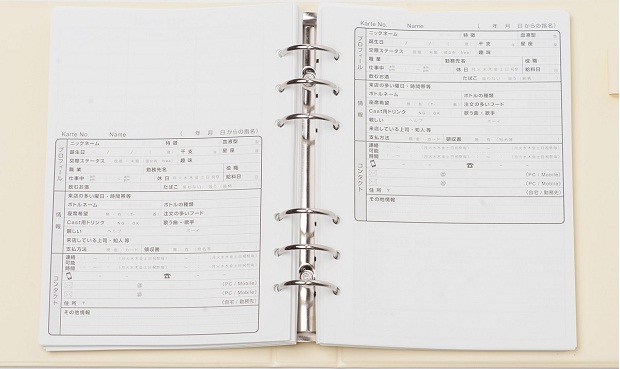 Karte No. Name ( 年 月 日からの指名)
プロフィール
ニックネーム 特徴 血液型 型
誕生日 / / ( 才) 干支 星座 座
交際ステータス 趣味
職業 勤務先名 役職
仕事中 休日 給料日 日
飲むお酒 たばこ
情報
来店の多い曜日・時間帯等
ボトルネーム ボトルの種類
座席希望 注文の多いフード
Cast用ドリンク 歌う曲・歌手
親しい ヘルプ ボーイ
来店している上司・知人等
支払方法 領収書
コンタクト
連絡可能時間
☎ - -
@ (PC / Mobile)
@ (PC / Mobile)
住所 〒 (自宅 / 勤務先)
その他情報
Karte No. Name ( 年 月 日からの指名)
プロフィール
ニックネーム 特徴 血液型 型
誕生日 / / ( 才) 干支 星座 座
交際ステータス 趣味
職業 勤務先名 役職
仕事中 休日 給料日 日
飲むお酒 たばこ
情報
来店の多い曜日・時間帯等
ボトルネーム ボトルの種類
座席希望 注文の多いフード
Cast用ドリンク 歌う曲・歌手
親しい ヘルプ ボーイ
来店している上司・知人等
支払方法 領収書
コンタクト
連絡可能時間
☎ - -
@ (PC / Mobile)
@ (PC / Mobile)
住所 〒 (自宅 / 勤務先)
その他情報